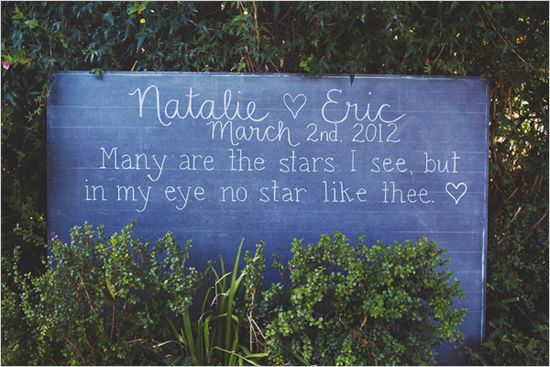 Natalie ♡ Eric
March 2nd, 2012
Many are the stars I see, but
in my eye no star like thee. ♡